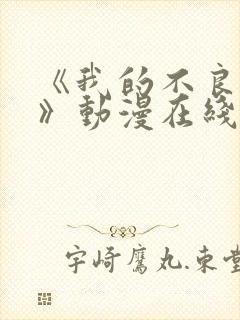 《我的不良
》動漫在綫
宇崎鷹丸.東堂